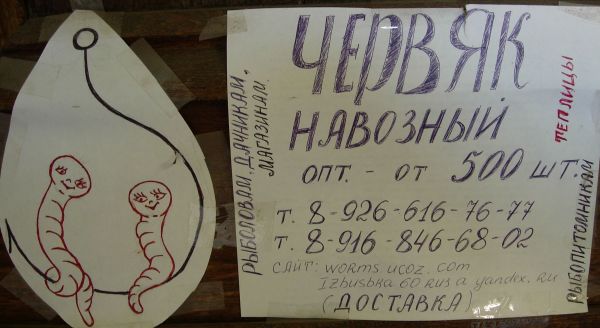 ЧЕРВЯК
НАВОЗНЫЙ
ОПТ. - ОТ 500 ШТ.
Т. 8-926-616-76-77
Т. 8-916-846-68-02
САЙТ: worms.ucoz.com
Izbushka 60 rus a yandex.ru
(ДОСТАВКА)
РЫБОЛОВАМ, ДАЧНИКАМ,
МАГАЗИНАМ.
ТЕПЛИЦЫ
РЫБОПИТОМНИКАМ